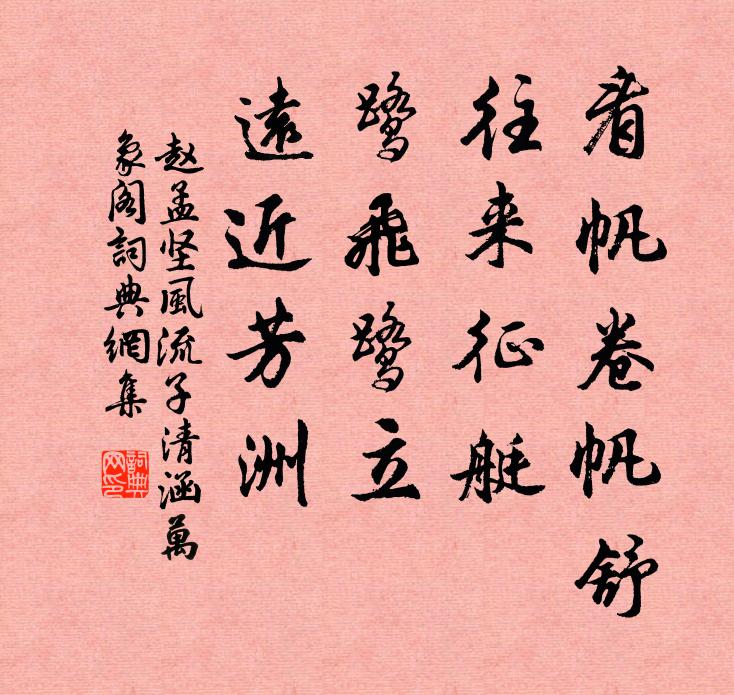 看帆卷帆舒
往来征艇
鹭飛鹭立
遠近芳洲
赵孟坚風流子清涵萬
象阁詞典網集
詞典
网印